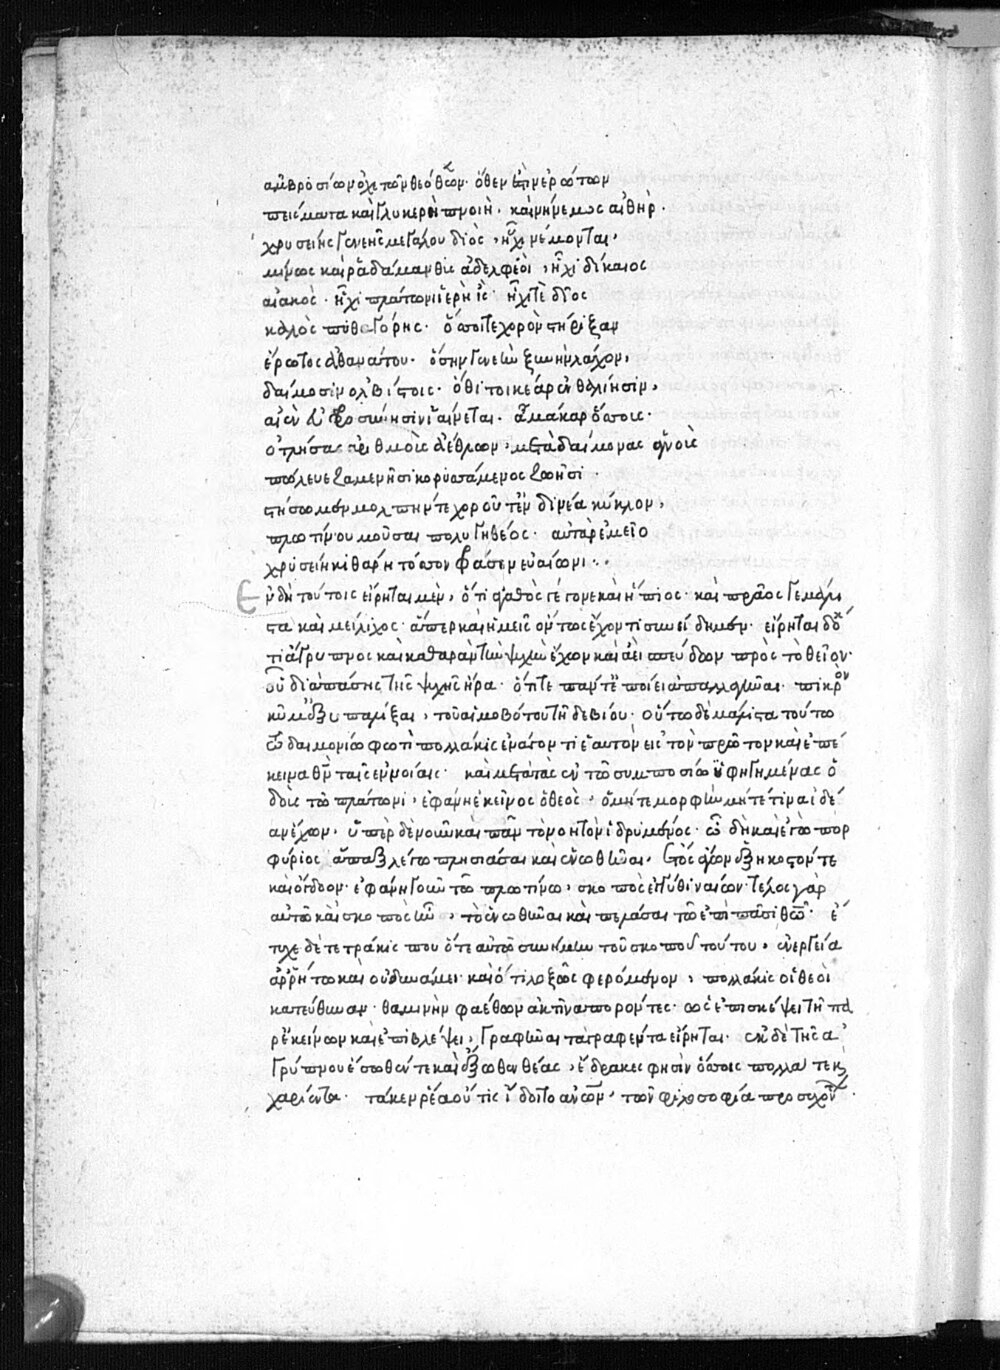 ἀμβροσίων ὀχετῶν θεόθεν· ὅθεν ἐστὶν ἐρώτων
πείσματα καὶ γλυκερὴ πνοιὴ, καὶ νήνεμος αἰθὴρ.
χρυσείης γενεῆς μεγάλου διὸς, ἧχι νέμονται,
μίνως καὶ ῥαδάμανθυς ἀδελφεοὶ, ἧχι δίκαιος
αἰακὸς· ἧχι πλάτων ἱερὴ ἲς· ἧχί τε δῖος
καλὸς πυθαγόρης· ὅσσοι τε χορὸν στήριξαν
ἔρωτος ἀθανάτου· ὅσοι γενεὴν ξυνὴν λάχον,
δαίμοσιν ὀλβίστοις· ὅθι τοι κέαρ ἐν θαλίῃσιν,
αἰὲν ἐϋφροσύνῃσιν ἰαίνεται. ἆ μάκαρ ὅσσους
ὀτλήσας ἀριθμοὺς ἀέθλων, μετὰ δαίμονας ἁγνοὺς
πωλεύε ζαμενῇσι κορυσσάμενος ζωῇσι.
στήσωμεν μολπήν τε χοροῦ τ' εὐδινέα κύκλον,
πλωτίνου μοῦσαι πολυγηθέος· αὐτὰρ ἐμεῖο
χρυσείη κιθάρη τόσσον φράσεν εὐαίωνι.
Ἐν δὴ τούτοις εἴρηται μὲν, ὅτι ἀγαθὸς γέγονε καὶ ἤπιος· καὶ πρᾶος γε μάλι
στα καὶ μείλιχος· ἅπερ καὶ ἡμεῖς ὄντως ἔχοντι συνῄδειμεν· εἴρηται δὲ ὅ
τι ἄγρυπνος καὶ καθαρὰν τὴν ψυχὴν ἔχων καὶ ἀεὶ σπεύδων πρὸς τὸ θεῖον·
οὗ διαπάσης τῆς ψυχῆς ἤρα· ὅτι τε πάντ' ἐποίει ἀπαλλαγῆναι· πικρὸν
κῦμ' ἐξυπαλύξαι, τοῦ αἱμοβότου τῇδε βίου· οὕτω δὲ μάλιστα τούτω
τῷ δαιμονίῳ φωτὶ πολλάκις ἐνάγοντι ἑαυτὸν εἰς τὸν πρῶτον καὶ ἐπέ
κεινα θεὸν ταῖς ἐννοίαις· καὶ κατὰ τὰς ἐν τῷ συμποσίῳ ὑφηγημένας ὁ
δοὺς τῷ πλάτωνι, ἐφάνη ἐκεῖνος ὁ θεὸς, ὁ μήτε μορφὴν μήτε τινὰ ἰδέ
αν ἔχων, ὑπὲρ δὲ νοῦν καὶ πᾶν τὸ νοητὸν ἱδρυμένος· ᾧ δὴ καὶ ἐγὼ πορ
φύριος ἅπαξ λέγω πλησιάσαι καὶ ἑνωθῆναι, ἔτος ἄγων ἑξηκοστόν τε
καὶ ὄγδοον· ἐφάνη γοῦν τῷ πλωτίνῳ, σκοπὸς ἐγγύθι ναίων· τέλος γὰρ
αὐτῷ καὶ σκοπὸς ἦν, τὸ ἑνωθῆναι καὶ πελάσαι τῷ ἐπὶ πᾶσι θεῷ· ἔ
τυχε δὲ τετράκις που ὅτε αὐτῷ συνήμην τοῦ σκοποῦ τούτου, ἐνεργείᾳ
ἀρρήτῳ καὶ οὐ δυνάμει· καὶ ὅτι λοξῶς φερόμενον, πολλάκις οἱ θεοὶ
κατεύθυναν· θαμινὴν φαέθων ἀκτῖνα πορόντες· ὡς ἐπισκέψει τῇ πα
ρ' ἐκείνων καὶ ἐπιβλέψει, γραφῆναι τὰ γραφέντα εἴρηται. ἐκ δὲ τῆς ἀ
γρύπνου ἔσωθέν τε καὶ ἔξωθεν θέας, ἔδρακες φησὶν ὄσσοις πολλά τε καὶ
χαρίεντα· τά κεν ῥέα οὔτις ἴδοιτο ἀνθρώπων, τῶν φιλοσοφίᾳ προσεχόντων.